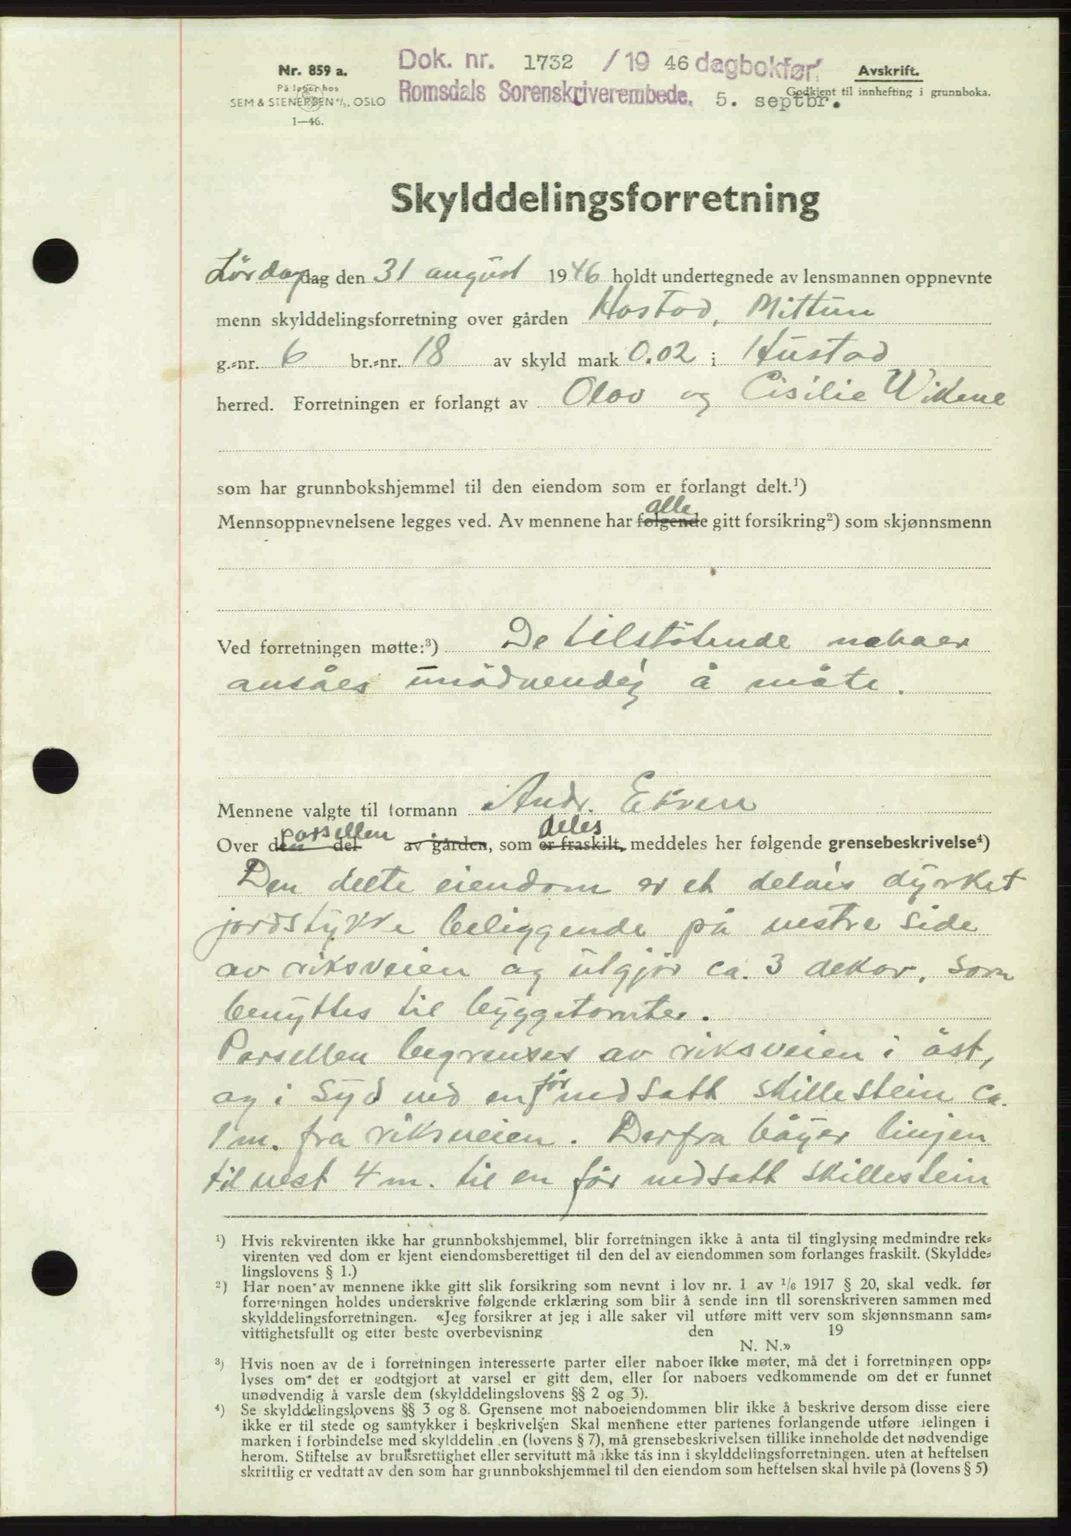 Nr. 859 a.
På lager hos
SEM & STENERSEN A/S, OSLO
1—46.
Dok. nr. 1732 / 19 46 dagbokfør.
Romsdals Sorenskriverembede. 5. septbr.
Avskrift.
Godkjent til innhefting i grunnboka.
Skylddelingsforretning
Lørdag dag den 31 august 1946 holdt undertegnede av lensmannen oppnevnte
menn skylddelingsforretning over gården Hostad, Mittun
g.-nr. 6 br.-nr. 18 av skyld mark 0.02 i Hustad
herred. Forretningen er forlangt av Olav og Cisilie Wikene
som har grunnbokshjemmel til den eiendom som er forlangt delt.¹)
alle
Mennsoppnevnelsene legges ved. Av mennene har følgende gitt forsikring²) som skjønnsmenn
Ved forretningen møtte:³) De tilstøtende naboer
ansåes unødvendig å møte.
Mennene valgte til formann Andr. Ekren
parsellen deles
Over den del av gården, som er fraskilt, meddeles her følgende grensebeskrivelse⁴)
Den delte eiendom er et delvis dyrket
jordstykke beliggende på vestre side
av riksveien og utgjør ca. 3 dekar, som
benyttes til byggetomter.
Parsellen begrenses av riksveien i øst,
og i syd ved en før nedsatt skillestein ca.
1 m. fra riksveien. Derfra bøyer linjen
til vest 4 m. til en før nedsatt skillestein
¹) Hvis rekvirenten ikke har grunnbokshjemmel, blir forretningen ikke å anta til tinglysing medmindre rek-
virenten ved dom er kjent eiendomsberettiget til den del av eiendommen som forlanges fraskilt. (Skyldde-
lingslovens § 1.)
²) Har noen av mennene ikke gitt slik forsikring som nevnt i lov nr. 1 av 1/6 1917 § 20, skal vedk. før
forretningen holdes underskrive følgende erklæring som blir å sende inn til sorenskriveren sammen med
skylddelingsforretningen. «Jeg forsikrer at jeg i alle saker vil utføre mitt verv som skjønnsmann sam-
vittighetsfullt og etter beste overbevisning den 19
N. N.»
³) Hvis noen av de i forretningen interesserte parter eller naboer ikke møter, må det i forretningen opp-
lyses om det er godtgjort at varsel er gitt dem, eller for naboers vedkommende om det er funnet
unødvendig å varsle dem (skylddelingslovens §§ 2 og 3).
⁴) Se skylddelingslovens §§ 3 og 8. Grensene mot naboeiendommen blir ikke å beskrive dersom disse eiere
ikke er til stede og samtykker i beskrivelsen Skal mennene etter partenes forlangende utføre delingen i
marken i forbindelse med skylddelingen (lovens § 7), må grensebeskrivelsen tillike inneholde det nødvendige
herom. Stiftelse av bruksrettighet eller servitutt må ikke tas inn i skylddelingsforretningen, uten at heftelsen
skriftlig er vedtatt av den som har grunnbokshjemmel til den eiendom som heftelsen skal hvile på (lovens § 5)